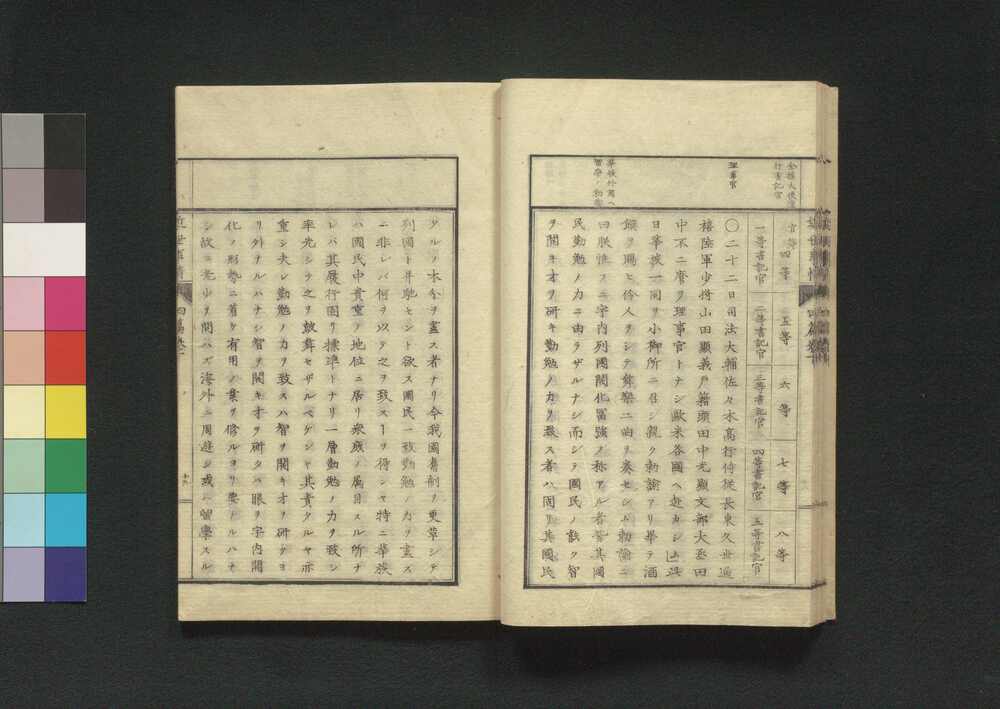 全權大使書
行書記官
理事官
華族外國ヘ
官等 四等 五等 六等 七等 八等
一等書記官 二等書記官 三等書記官 四等書記官 五等書記官
〇二十二日司法大輔佐々木高行侍從長東久世通
禧陸軍少將山田顯義戸籍頭田中光顯文部大丞田
中不二麿ヲ理事官トナシ歐米各國ヘ赴カシム此
日華族一同ヲ小御所ニ召シ親ク勅諭アリ畢テ酒
饌ヲ賜ヒ伶人ヲシテ舞樂二曲ヲ奏セシム勅諭ニ
曰朕惟フニ宇内列國開化冨強ノ称アル者皆其國
民勤勉ノ力ニ由ラザルナシ而シテ國民ノ能ク智
ヲ開キオヲ研キ勤勉ノ力ヲ致ス者ハ固リ其國民
タルノ本分ヲ盡ス者ナリ今我國舊制ヲ更革シテ
列國ト并馳セント欲ス國民一致勤勉ノ力ヲ盡ス
ニ非レバ何ヲ以テ之ヲ致スヿヲ得ンヤ特ニ華族
ハ國民中貴重ノ地位ニ居リ衆庶ノ属目スル所ナ
レバ其履行固リ標準トナリ一層勤勉ノ力ヲ致シ
率先シテ之ヲ皷舞セザルベケンヤ其責タルヤ亦
重シ夫レ勤勉ノ力ヲ致スハ智ヲ開キオヲ研クヨ
リ外ナルハナシ智ヲ開キオヲ研クハ眼ヲ宇内開
化ノ形勢ニ着ケ有用ノ業ヲ修ルヨリ要ナルハナ
シ故ニ老少ヲ問ハズ海外ニ周遊シ或ハ留學スル
近世事情 四篇卷十一